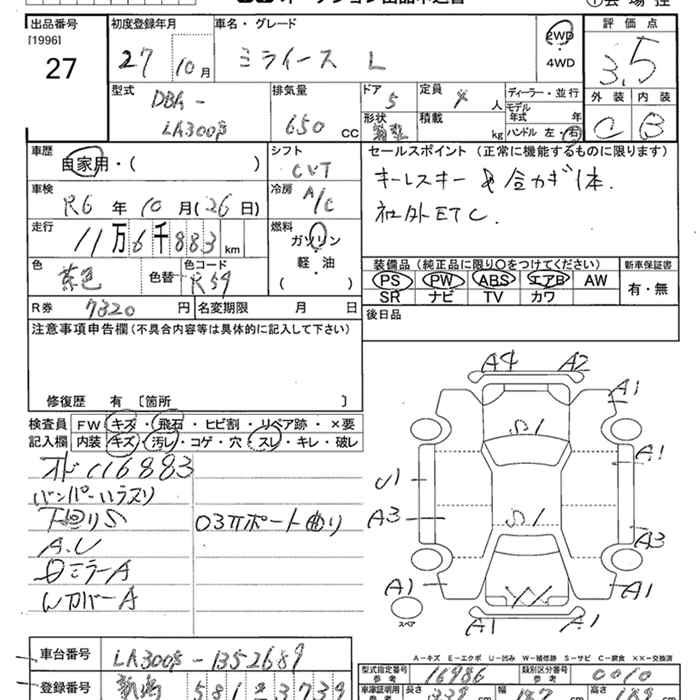 出品番号
[1996]
27
初度登録年月
27 10月
車名・グレード
ミライース L
2WD
・
4WD
評価点
3.5
外装 内装
C B
型式
DBA-
LA300S
排気量
650 cc
ドア 5
定員 4 人
形状
積載 kg
ディーラー・並行
モデル年式 年
ハンドル 左・右
車歴
自家用・( )
シフト
CVT
車検
R6年10月(26日)
冷房
A/C
走行
11万6千883km
燃料
ガソリン
・
軽・油
( )
色
茶色
色替
色コード
R59
R券 7320円
名変期限 月 日
セールスポイント (正常に機能するものに限ります)
キーレスキー & 合カギ1本.
社外ETC.
装備品 (純正品に限り○をつけてください)
新車保証書
PS PW ABS エアB AW
SR ナビ TV カワ
有・無
後日品
注意事項申告欄(不具合内容等は具体的に記入して下さい)
修復歴 有 〔箇所 〕
検査員記入欄
FW キズ・飛石・ヒビ割・リペア跡・×要
内装 キズ・汚レ・コゲ・穴・スレ・キレ・破レ
オド 116883
バンパーハラスリ
下回りS
A.U
ミラーA
カバーA
03πポート曲り
A4 A2
A1
S1
A1
U1
A3
S1
A3
A1
A1
A1
A1
スペア
A−キズ E−エクボ U−凹み W−補修跡 S−サビ C−腐食 ××−交換済
車台番号
LA300S-1352689
登録番号
新潟 581 3739
型式指定番号
参考
16986
類別区分番号
参考
0010
車庫証明用
参考
長さ 339 cm
幅 147 cm
高さ